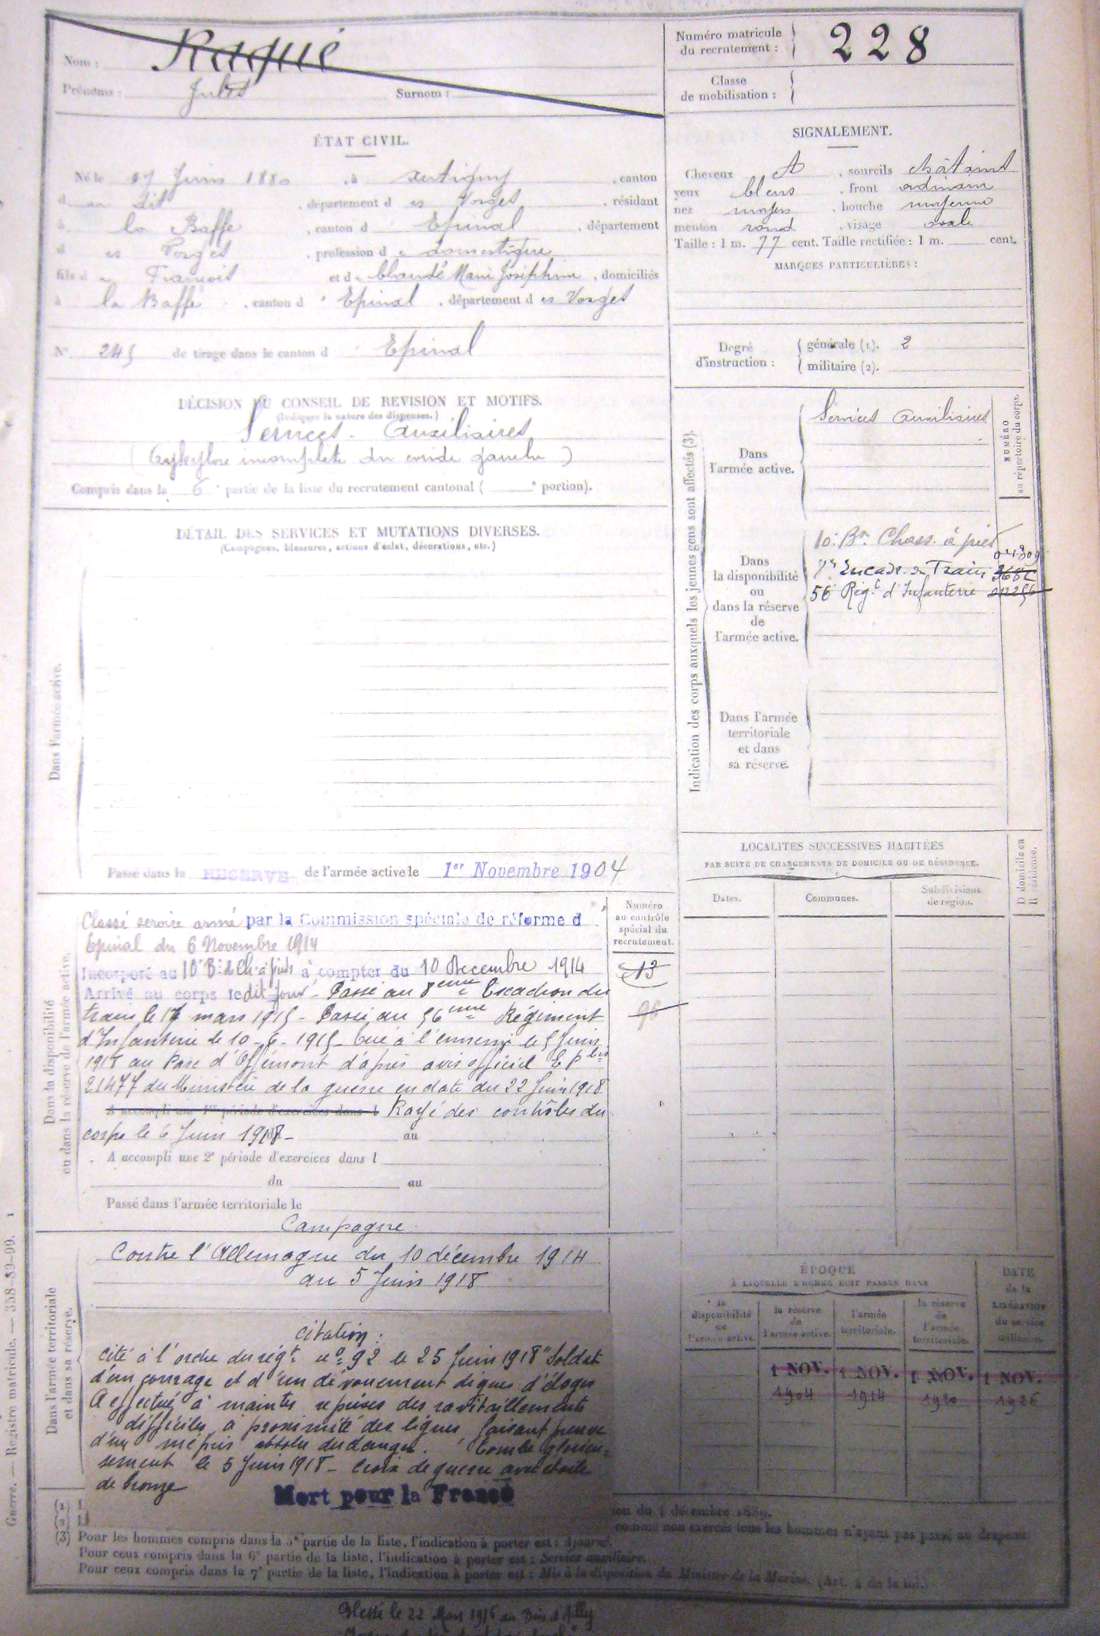 Nom : Raqué
Prénoms : Jules Surnom :
Numéro matricule du recrutement : 228
Classe de mobilisation :
ÉTAT CIVIL.
Né le 07 Juin 1880, à Xertigny, canton
d u dit, département d es Vosges, résidant
à la Baffe, canton d' Epinal, département
d es Vosges, profession d e domestique
fils d e François et d e Claudé Marie Joséphine, domiciliés
à la Baffe, canton d' Epinal, département d es Vosges
N° 245 de tirage dans le canton d' Epinal
SIGNALEMENT.
Cheveux et, sourcils châtains
yeux bleus, front ordinaire
nez moyen, bouche moyenne
menton rond, visage ovale
Taille : 1 m. 77 cent. Taille rectifiée : 1 m. cent.
MARQUES PARTICULIÈRES :
Degré d'instruction : générale (1). 2
militaire (2).
DÉCISION DU CONSEIL DE REVISION ET MOTIFS.
(Indiquer la nature des dispenses.)
Services Auxiliaires
(Ankylose incomplète du coude gauche)
Compris dans la 6e partie de la liste du recrutement cantonal ( e portion).
DÉTAIL DES SERVICES ET MUTATIONS DIVERSES.
(Campagnes, blessures, actions d'éclat, décorations, etc.)
Dans l'armée active.
Passé dans la RÉSERVE de l'armée active le 1er Novembre 1904
Indication des corps auxquels les jeunes gens sont affectés (3).
NUMÉRO au répertoire du corps.
Dans l'armée active.
Services Auxiliaires
Dans la disponibilité ou dans la réserve de l'armée active.
10e Bn Chass. à pied
Escad. du Train
56 Régt d'Infanterie
Dans l'armée territoriale et dans sa réserve.
LOCALITÉS SUCCESSIVES HABITÉES
PAR SUITE DE CHANGEMENTS DE DOMICILE OU DE RÉSIDENCE.
Dates. Communes. Subdivisions de région. D domicile ou R résidence.
Dans la disponibilité ou dans la réserve de l'armée active.
Numéro au contrôle spécial du recrutement.
13
96
Classé service armé par la Commission spéciale de réforme d'
Epinal du 6 Novembre 1914
Incorporé au 10e B. de Ch. à pieds à compter du 10 Decembre 1914
Arrivé au corps le dit jour - Passé au 8eme Escadron du
train le 17 mars 1915 - Passé au 56eme Régiment
d'Infanterie le 10-6-1915 - Tué à l'ennemi le 5 Juin
1918 au Parc d'Offémont d'après avis officiel
21477 du Ministère de la guerre en date du 22 Juin 1918
A accompli une 1re période d'exercices dans l Rayé des contrôles du
corps le 6 Juin 1918 - au
A accompli une 2e période d'exercices dans l
du au
Passé dans l'armée territoriale le
Campagne
Contre l'Allemagne du 10 décembre 1914
au 5 Juin 1918
Dans l'armée territoriale et dans sa réserve.
Citation :
Cité à l'ordre du régt no 92 le 25 Juin 1918 "Soldat
d'un courage et d'un dévouement dignes d'éloges
A effectué à maintes reprises des ravitaillements
difficiles à proximité des lignes faisant preuve
d'un mépris absolu du danger. Tombé glorieu-
sement le 5 Juin 1918 - Croix de guerre avec étoile
de bronze
Mort pour la France
ÉPOQUE
À LAQUELLE L'HOMME DOIT PASSER DANS
la disponibilité de l'armée active.
la réserve de l'armée active.
l'armée territoriale.
la réserve de l'armée territoriale.
DATE de la LIBÉRATION du service militaire.
1 NOV. 1904
1 NOV. 1914
1 NOV. 1920
1 NOV. 1926
(1)
(2)
du 4 décembre 1889.
comme non exercés tous les hommes n'ayant pas passé au drapeau
(3) Pour les hommes compris dans la 5e partie de la liste, l'indication à porter est : Ajourné.
Pour ceux compris dans la 6e partie de la liste, l'indication à porter est : Service auxiliaire.
Pour ceux compris dans la 7e partie de la liste, l'indication à porter est : Mis à la disposition du Ministre de la Marine. (Art. 4 de la loi.)
Blessé le 22 Mars 1916 au Bois d'Ailly
Guerre. — Registre matricule. — 358-89-99.